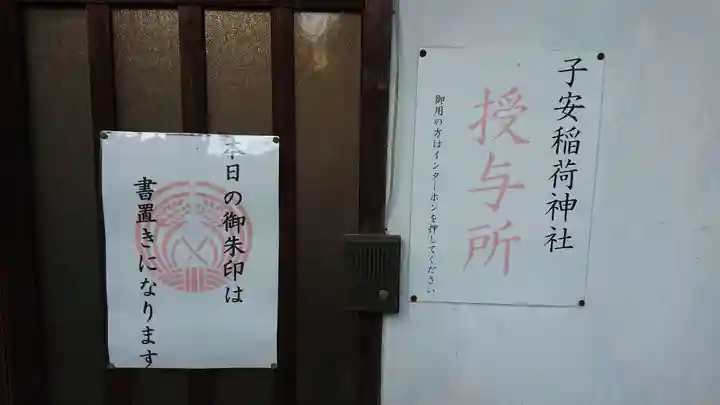 子安稲荷神社
授与所
御用の方はインターホンを押してください
本日の御朱印は
書置きになります